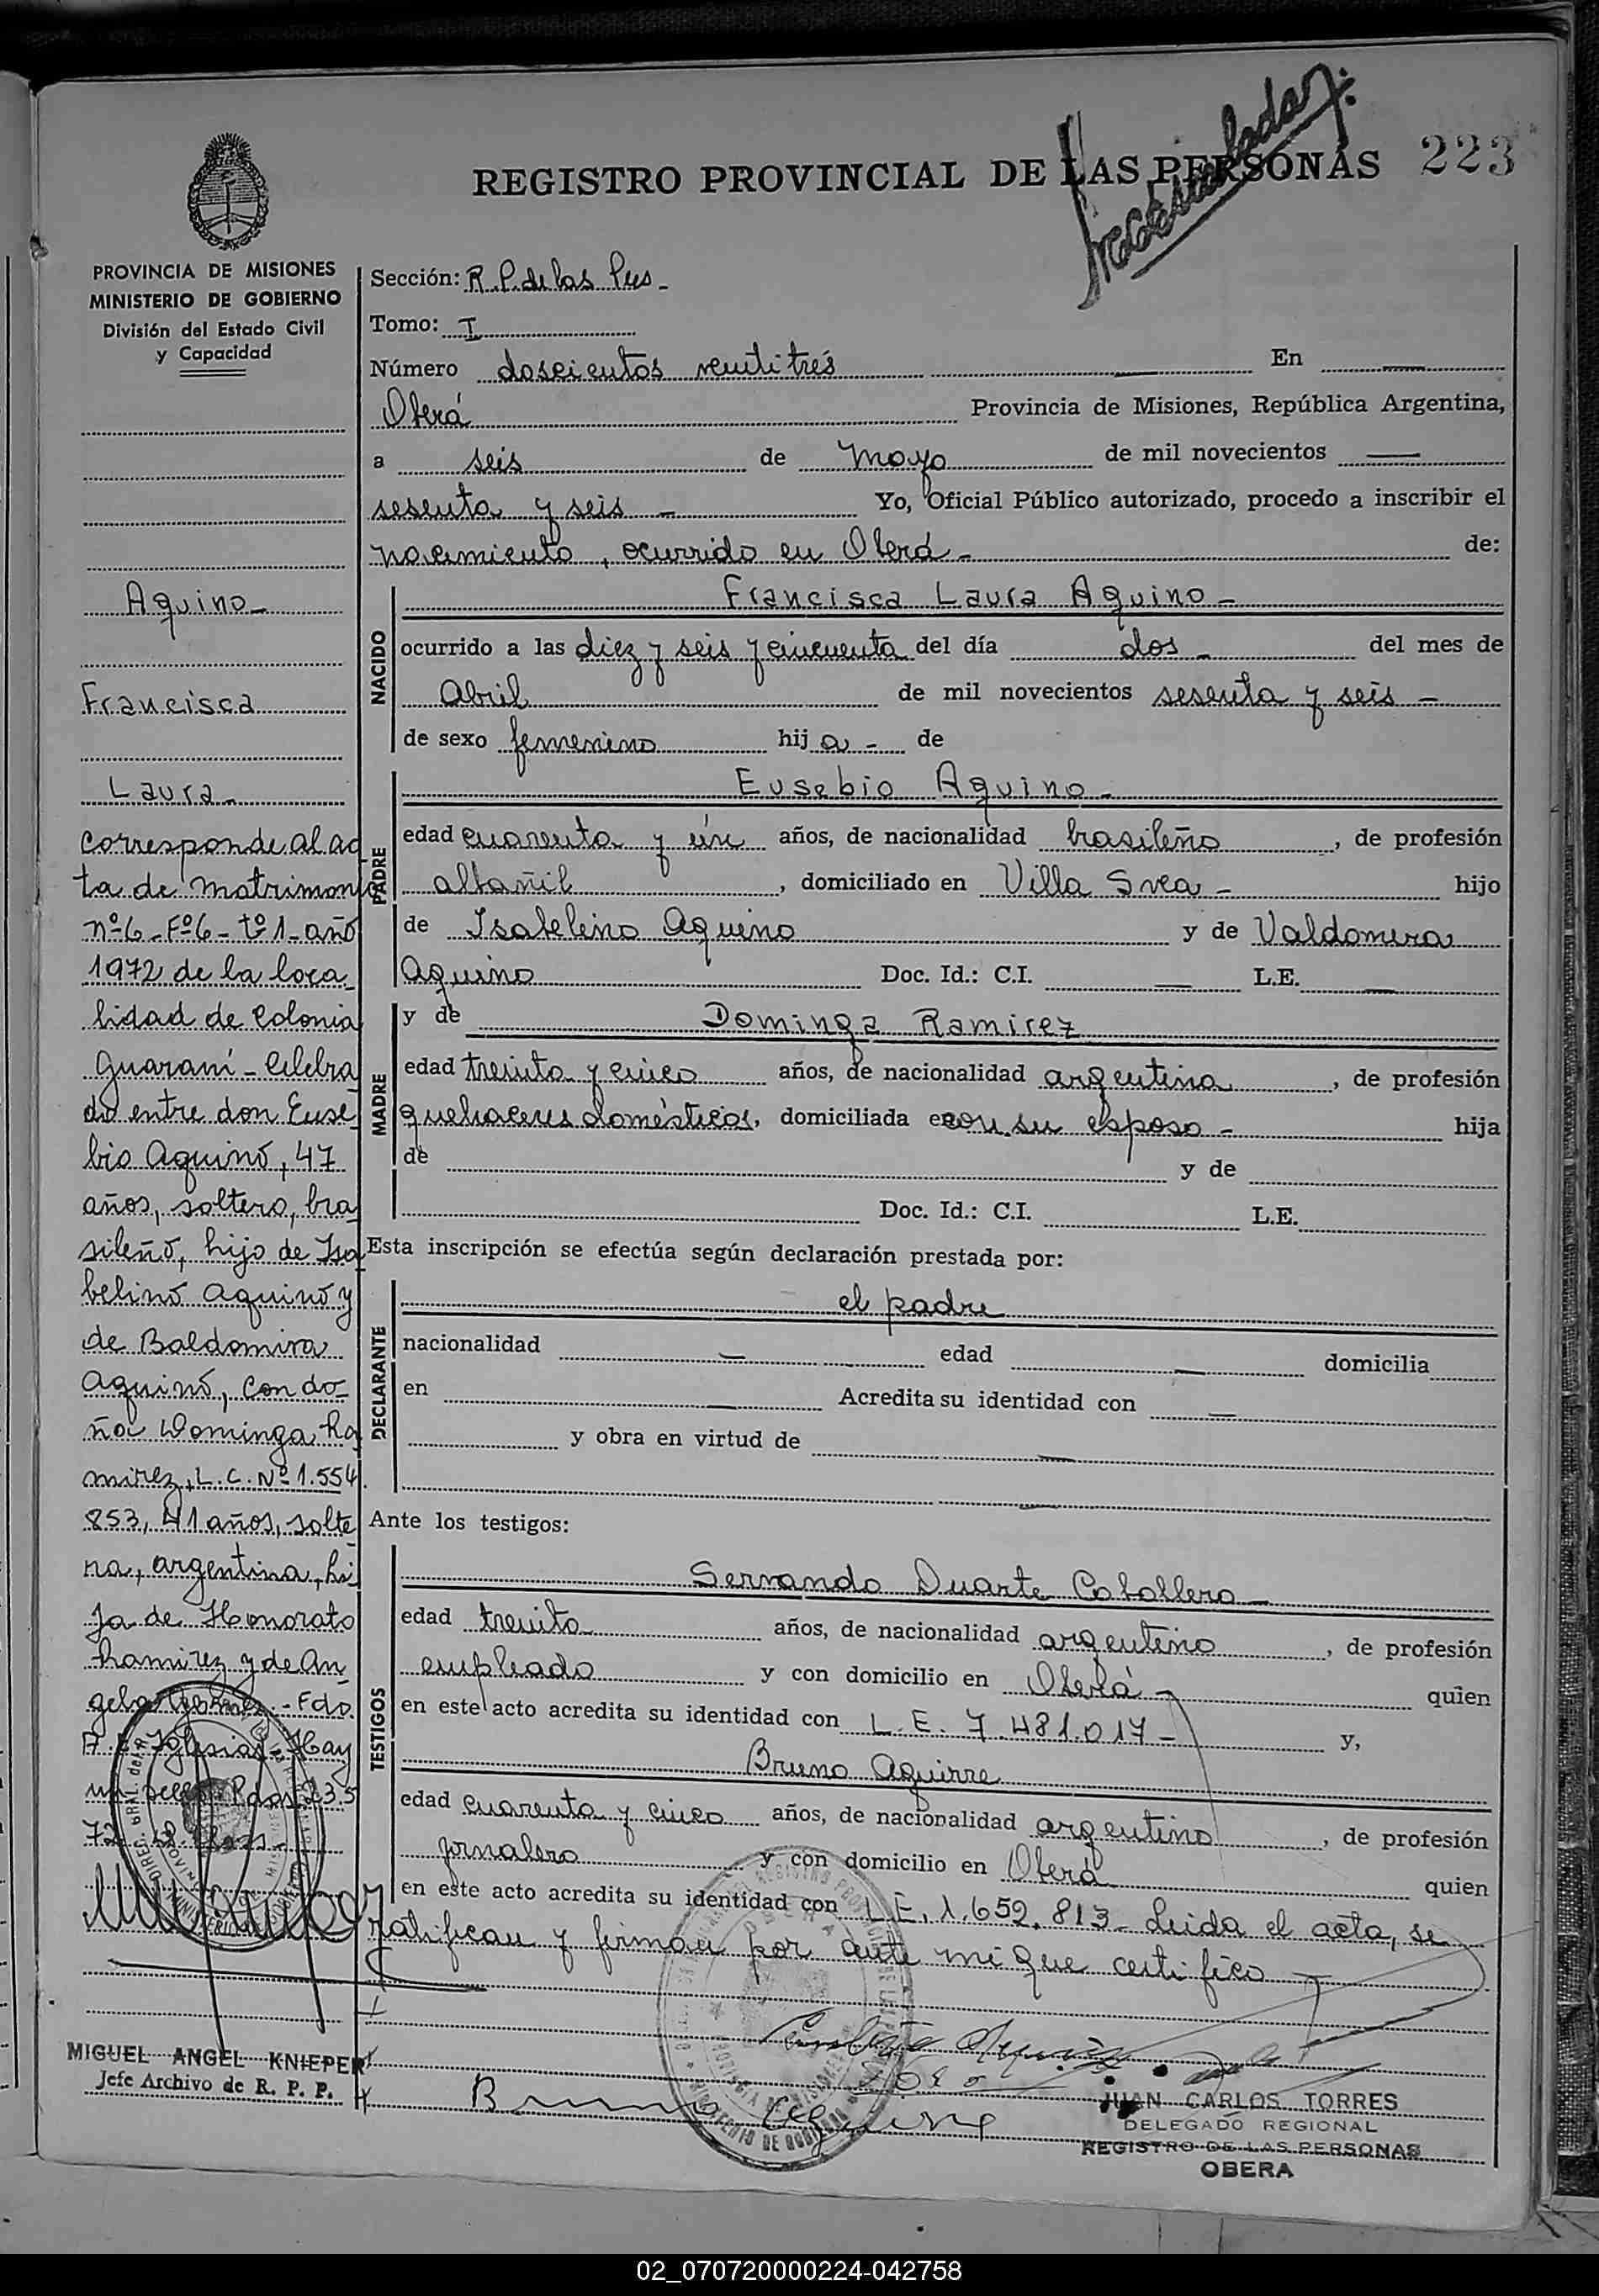 223
REGISTRO PROVINCIAL DE LAS PERSONAS
PROVINCIA DE MISIONES
MINISTERIO DE GOBIERNO
División del Estado Civil
y Capacidad
Aquino
Francisca
Laura
Corresponde al ac
ta de matrimonio
nº6 - Fº6 - tº1 - año
1972 de la loca
lidad de Colonia
Guaraní - Celebra
do entre don Euse
bio Aquino, 47
años, soltero, bra
sileño, hijo de Isa
belino Aquino y
de Baldomira
Aquino, con do
ña Dominga Ra
mirez, L.C. Nº 1.554
853, 41 años, solte
ra, argentina, hi
ja de Honorato
Ramirez y de An
gela - Fdo.
Iglesias - Hay
un sello Pdas 23.5
72
MIGUEL ANGEL KNIEPER
Jefe Archivo de R. P. P.
Sección: R.P. de las Pers -
Tomo: I
Número doscientos veintitrés — En —
Oberá Provincia de Misiones, República Argentina,
a seis de Mayo de mil novecientos —
sesenta y seis - Yo, Oficial Público autorizado, procedo a inscribir el
nacimiento, ocurrido en Oberá - de:
NACIDO
Francisca Laura Aquino -
ocurrido a las diez y seis y cincuenta del día dos - del mes de
Abril de mil novecientos sesenta y seis -
de sexo femenino hij a - de
PADRE
Eusebio Aquino -
edad cuarenta y un años, de nacionalidad brasileño, de profesión
albañil, domiciliado en Villa Svea - hijo
de Isabelino Aquino y de Valdomera
Aquino Doc. Id.: C.I. — L.E. —
MADRE
y de Dominga Ramirez
edad treinta y cinco años, de nacionalidad argentina, de profesión
quehaceres domésticos, domiciliada en con su esposo - hija
de y de
Doc. Id.: C.I. L.E.
Esta inscripción se efectúa según declaración prestada por:
DECLARANTE
el padre
nacionalidad — edad — domicilia
en — Acredita su identidad con —
y obra en virtud de —
—
Ante los testigos:
TESTIGOS
Servando Duarte Caballero -
edad treinta años, de nacionalidad argentino, de profesión
empleado y con domicilio en Oberá - quien
en este acto acredita su identidad con L.E. 7.481.017 - y,
Bruno Aguirre
edad cuarenta y cinco años, de nacionalidad argentino, de profesión
jornalero y con domicilio en Oberá quien
en este acto acredita su identidad con L.E. 1.652.813 - Leida el acta, se
ratifican y firman por ante mi que certifico
Bruno Aguirre
JUAN CARLOS TORRES
DELEGADO REGIONAL
REGISTRO DE LAS PERSONAS
OBERA
02_070720000224-042758